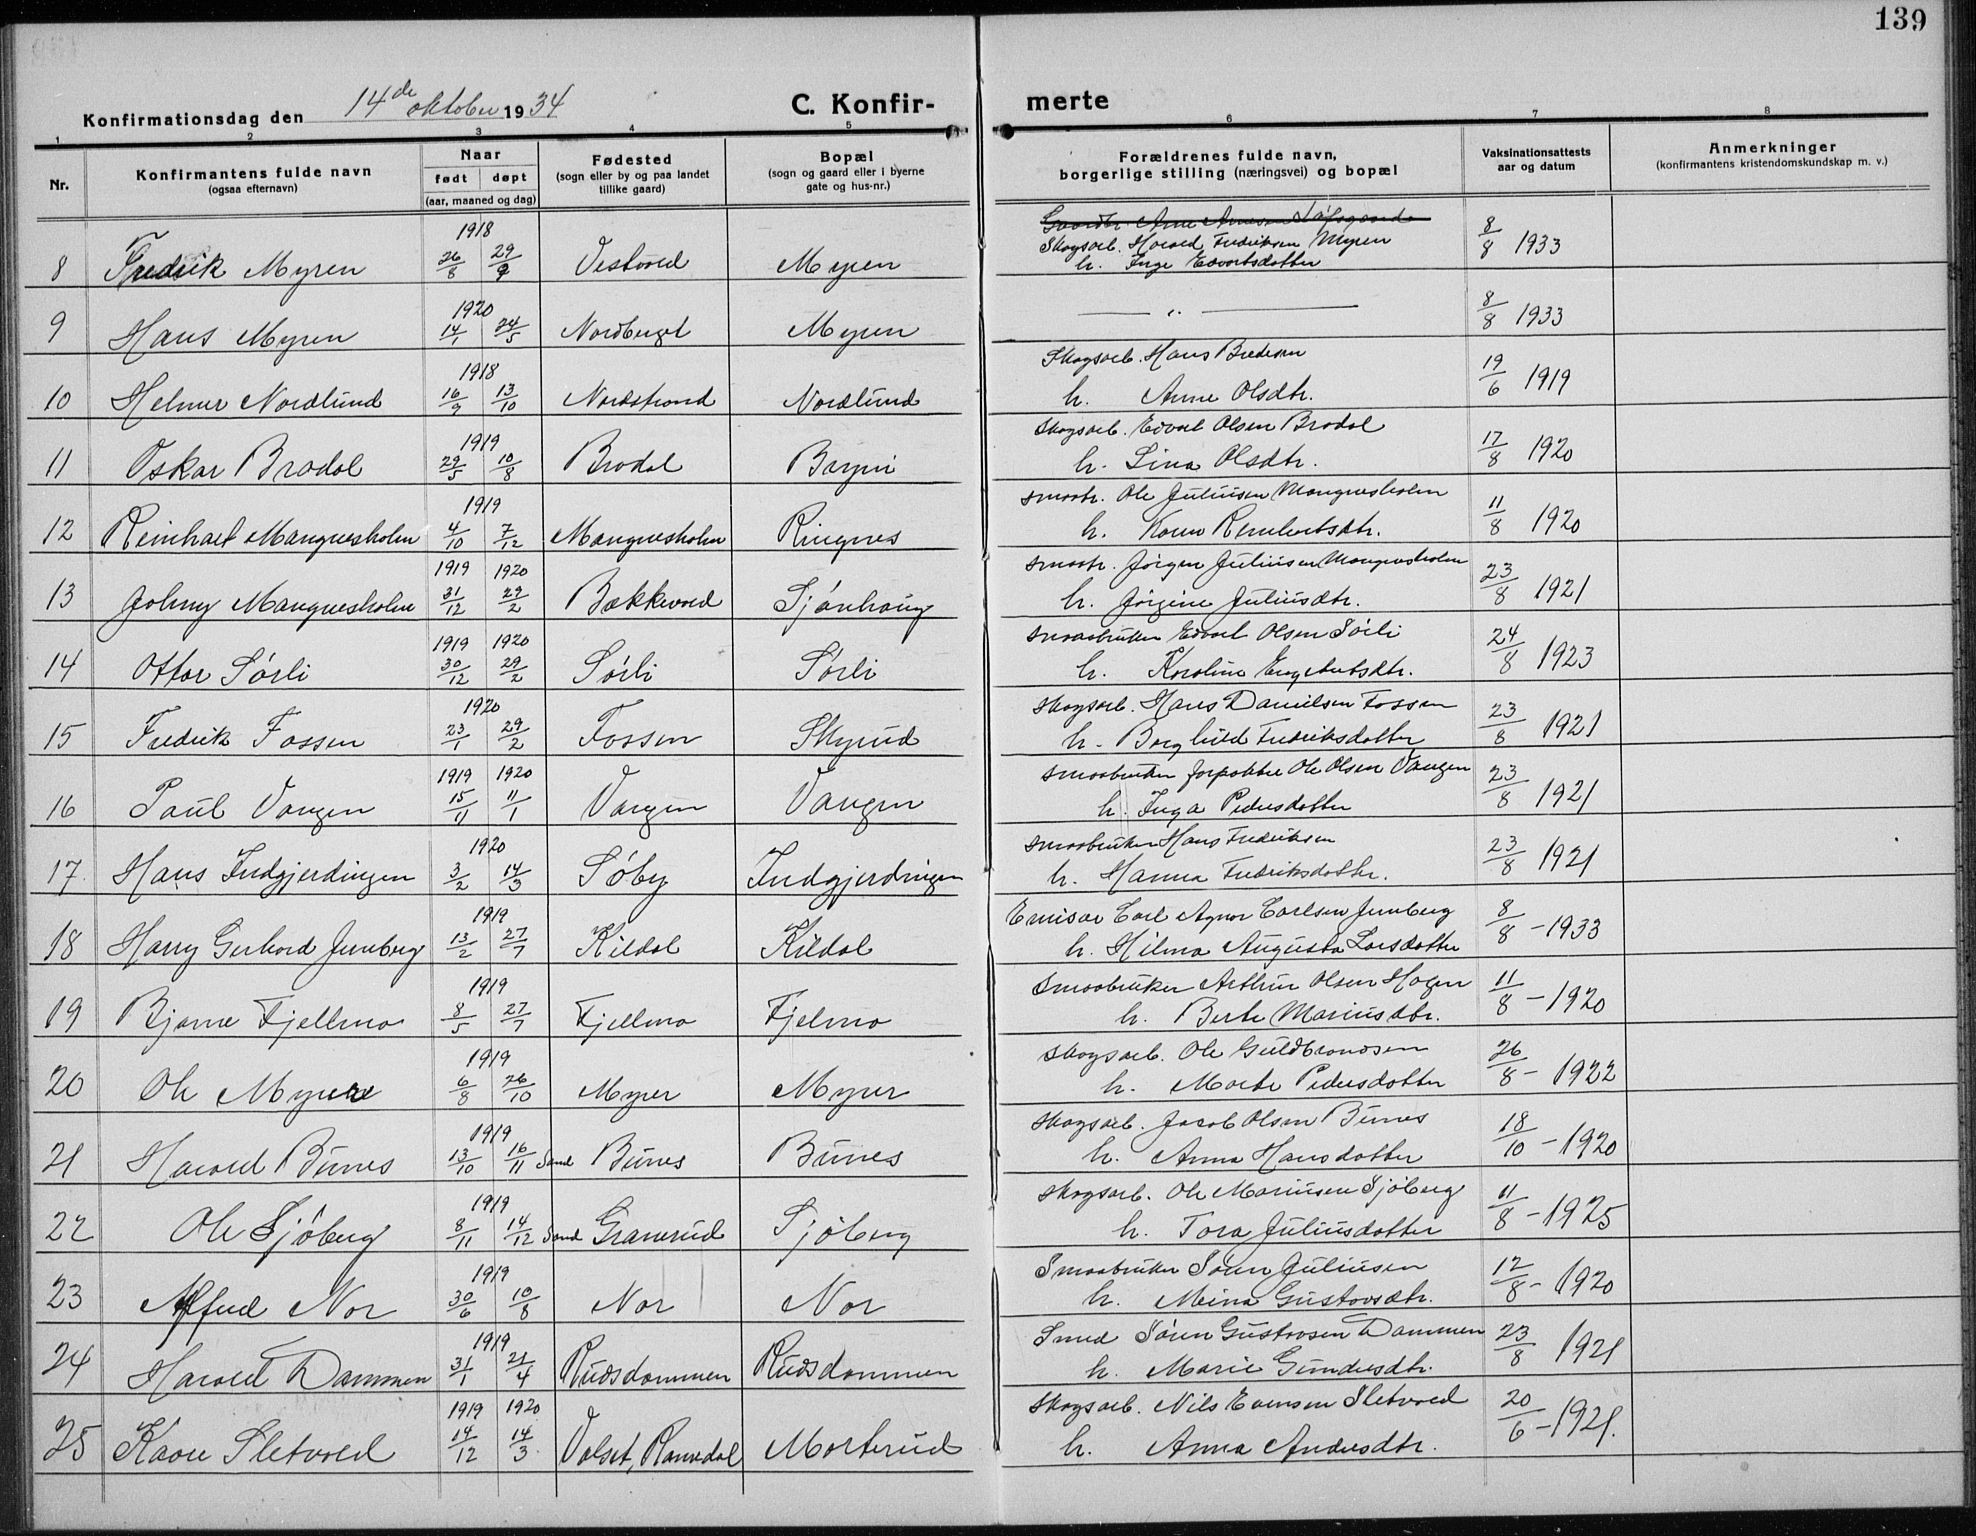 139
Konfirmationsdag den 14de oktober 1934 C. Konfir- merte
1 2 3 4 5 6 7 8
Nr. Konfirmantens fulde navn (ogsaa efternavn) Naar født døpt (aar, maaned og dag) Fødested (sogn eller by og paa landet tillike gaard) Bopæl (sogn og gaard eller i byerne gate og hus-nr.) Forældrenes fulde navn, borgerlige stilling (næringsvei) og bopæl Vaksinationsattests aar og datum Anmerkninger (konfirmantens kristendomskundskap m. v.)
1918
8 Fredrik Myren 26/8 29/9 Vestvold Myren Skogsarb. Harald Fredriksen Myren 8/8 1933
h. Inge Edvartsdatter
1920
9 Hans Myren 14/1 24/5 Nordberget Myren — " — 8/8 1933
1918 Skogsarb. Hans Bredesen
10 Helmer Nordlund 16/9 13/10 Nordstrand Nordlund h. Anne Olsdtr. 19/6 1919
1919 Skogsarb. Edvart Olsen Brodal
11 Oskar Brodal 29/5 10/8 Brodal h. Lina Olsdtr. 17/8 1920
1919 smaabr. Ole Juliussen Mangnesholm
12 Reinhart Mangnesholm 4/10 7/12 Mangnesholm Ringnes h. Karen Reinhartsdtr. 11/8 1920
1919 1920 smaabr. Jørgen Juliussen Mangnesholm
13 Johny Mangnesholm 31/12 29/2 Bækkevold Sjønhaug h. Jørgine Juliusdtr. 23/8 1921
1919 1920 smaabruker Edvart Olsen Sørli
14 Ottar Sørli 30/12 29/2 Sørli Sørli h. Karoline Engebretsdtr. 24/8 1923
1920 skogsarb. Hans Danielsen Fossen
15 Fredrik Fossen 23/1 29/2 Fossen Skyrud h. Borghild Fredriksdatter 23/8 1921
1919 1920 smaabruker forpakter Ole Olsen Vangen
16 Paul Vangen 15/11 11/1 Vangen Vangen h. Inga Pedersdatter 23/8 1921
1920 smaabruker Hans Fredriksen
17. Hans Indgjerdingen 3/2 14/3 Søby Indgjerdingen h. Hanna Fredriksdatter. 23/8 1921
1919 Emisær Carl Agnar Carlsen Jernberg
18 Harry Gerhard Jernberg 13/2 27/7 Kildal Kildal h. Hilma Augusta Larsdatter 8/8 - 1933
1919 smaabruker Arthur Olsen Hagen
19 Bjarne Fjellmo 8/5 27/7 Fjellmo Fjelmo h. Berte Mariusdtr. 11/8 - 1920
1919 skogsarb. Ole Guldbrandsen
20 Ole Myrer 6/8 26/10 Myrer Myrer h. Marte Pedersdatter 26/8 - 1922
1919 Skogsarb. Jacob Olsen Bunes
21 Harald Bunes 13/10 16/11 Sand Bunes Bunes h. Anna Hansdatter 18/10 - 1920
1919 skogsarb. Ole Mariusen Sjøberg
22 Ole Sjøberg 8/11 14/12 Sand Granerud Sjøberg h. Tora Juliusdatter 11/8 - 1925
1919 Smaabruker Søren Juliussen
23 Alfred Nor 30/6 10/8 Nor Nor h. Mina Gustavsdtr. 12/8 - 1920
1919 Smed Søren Gustavsen Dammen
24 Harald Dammen 31/1 21/4 Rudsdammen Rudsdammen h. Marie Gundersdtr. 23/8 1921
1919 1920 skogsarb. Nils Evensen Sletvold
25 Kaare Sletvold 14/12 14/3 Valset, Romedal Morterud h. Anna Andersdtr. 20/6 - 1921.